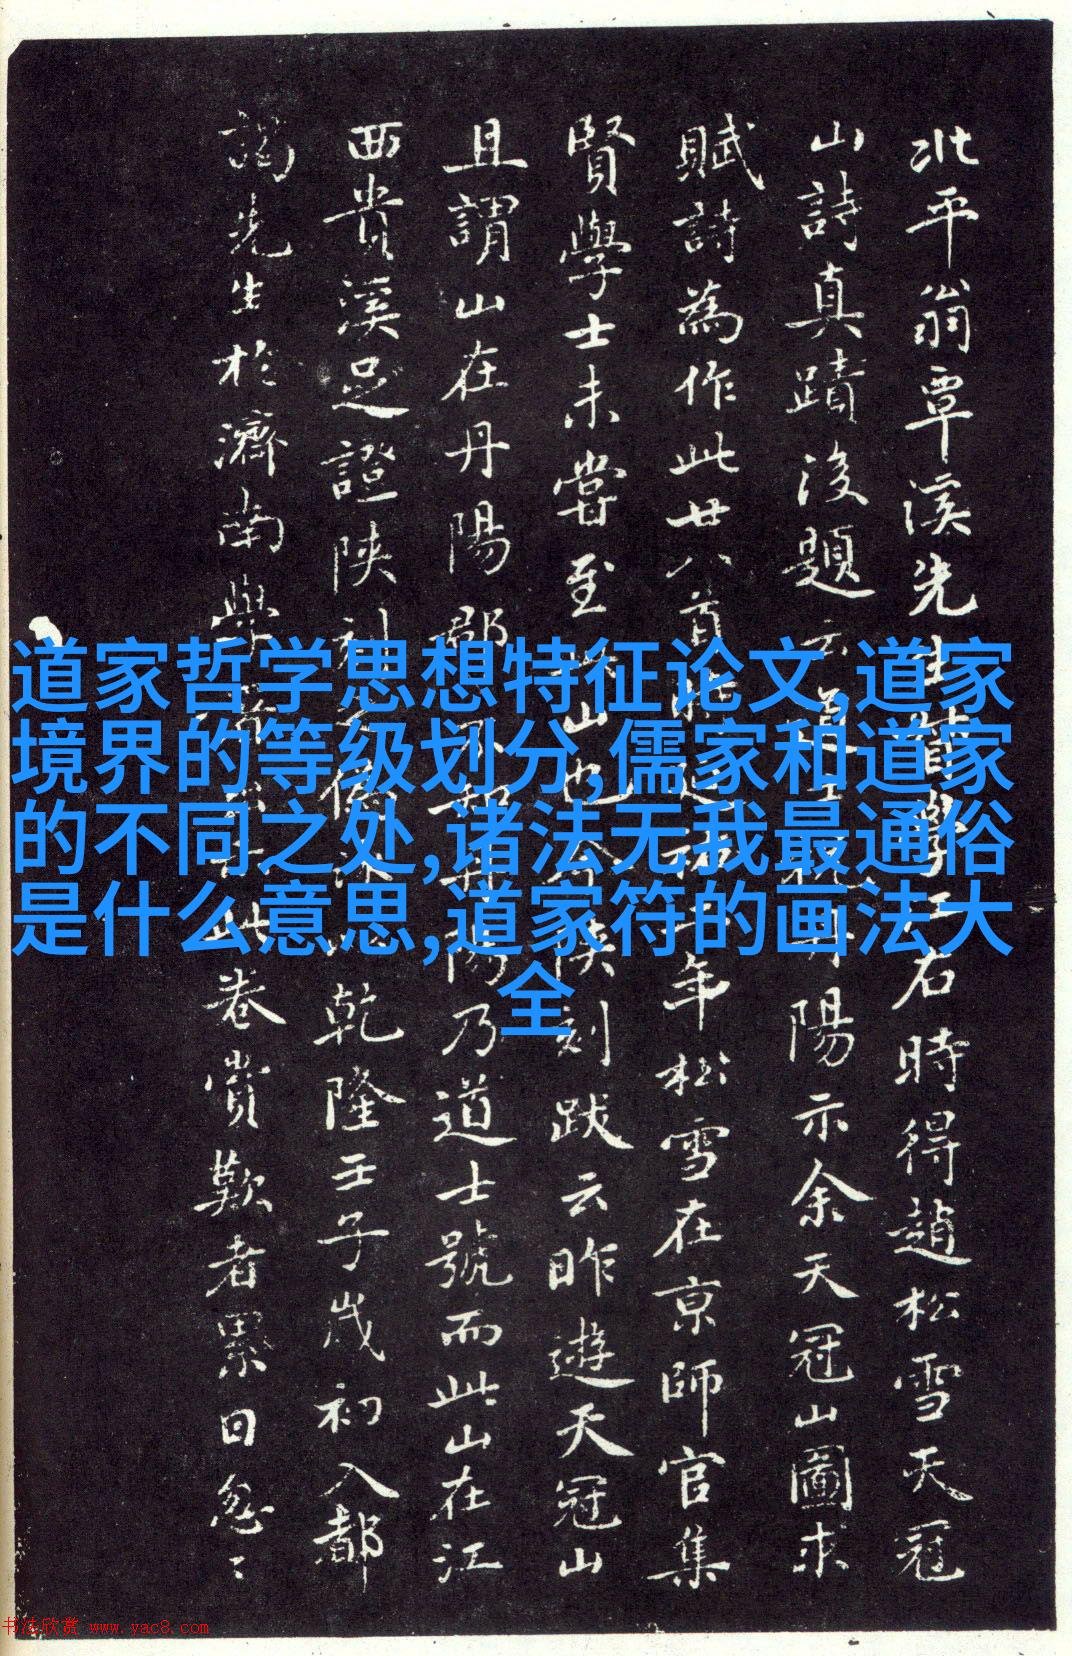 北平翁覃溪先生督學江右時得趙松雪天冠
山詩真蹟後題云道士祝丹陽示余天冠山圖求
賦詩為作此廿八首 年松雪在京師官集
賢學士未嘗至此山也今陝刻跋云昨遊天冠山
且謂山在丹陽郡不知丹陽乃道士號而此山在江
西貴溪足證陝刻之偽 乾隆壬子歲初入都
謁先生於濟南學 此卷賞歎者累日忽〻
道家哲学思想特征论文,道家
境界的等级划分,儒家和道家
的不同之处,诸法无我最通俗
是什么意思,道家符的画法大
全
书法欣赏 www.yac8.com